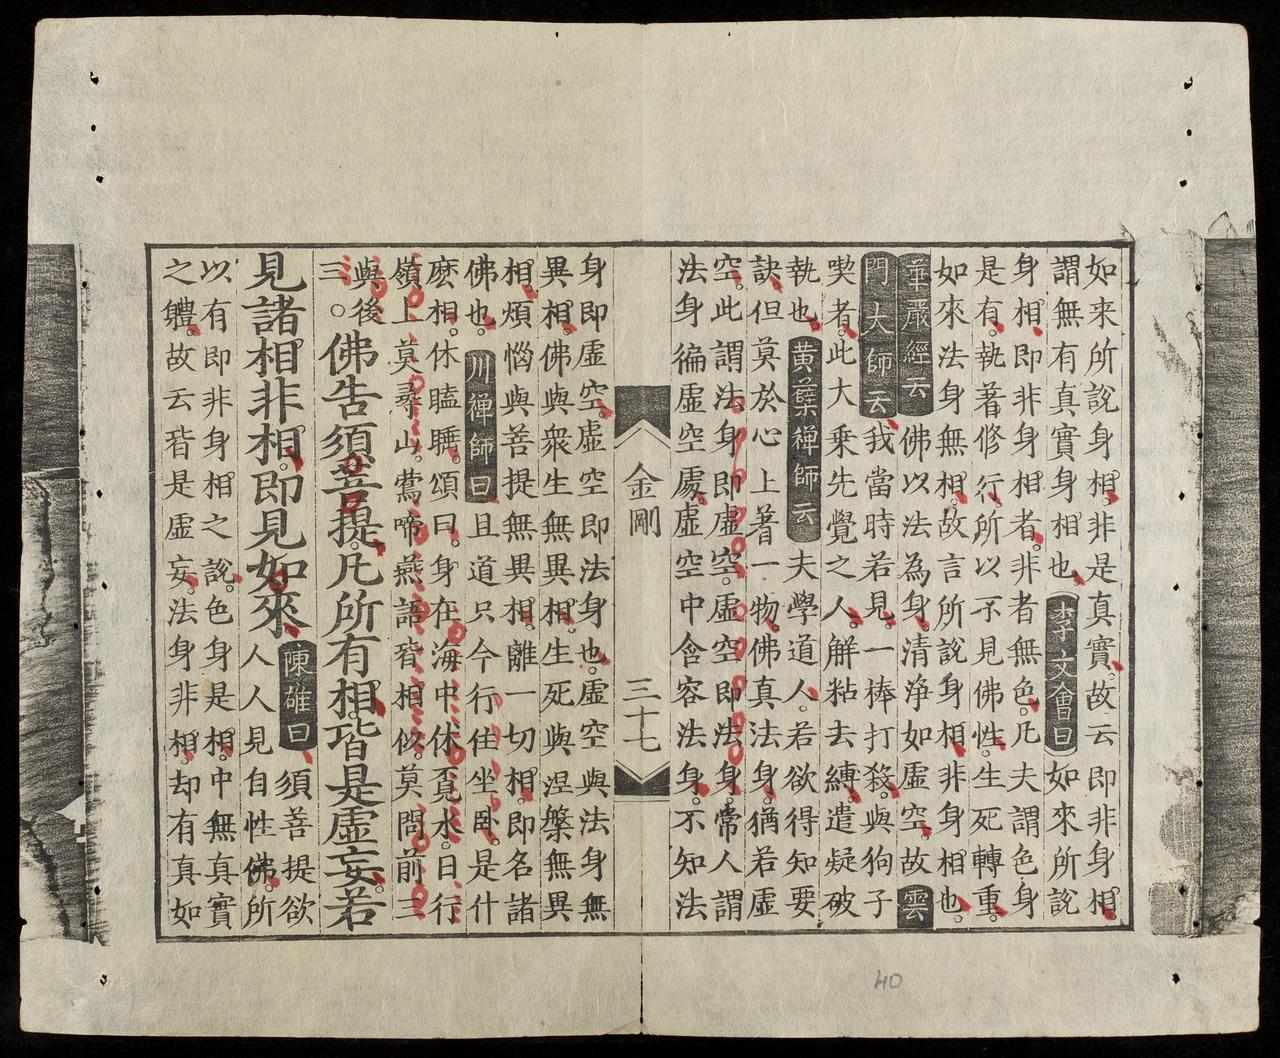 如来所說身相。非是真實。故云即非身相。
謂無有真實身相也。李文會曰如來所說
身相。即非身相者。非者無色。凡夫謂色身
是有。執著修行。所以不見佛性。生死轉重。
如來法身無相。故言所說身相。非身相也。
華嚴經云佛以法為身。清淨如虛空。故雲
門大師云我當時若見。一棒打殺。與狗子
喫者。此大乘先覺之人。解粘去縛。遣疑破
執也。黃蘗禪師云夫學道人。若欲得知要
訣。但莫於心上著一物。佛真法身。猶若虛
空。此謂法身即虛空。虛空即法身。常人謂
法身徧虛空處。虛空中含容法身。不知法
金剛
三十七
身即虛空。虛空即法身也。虛空與法身無
異相。佛與衆生無異相。生死與涅槃無異
相。煩惱與菩提無異相。離一切相。即名諸
佛也。川禪師曰且道只今行住坐卧。是什
麽相。休瞌睡。頌曰。身在海中休覓水。日行
嶺上莫尋山。鶯啼燕語皆相似。莫問前三
與後三。
佛告須菩提。凡所有相。皆是虛妄。若
見諸相非相。即見如來。陳雄曰須菩提欲
人人見自性佛。所
以有即非身相之說。色身是相。中無真實
之體。故云皆是虛妄。法身非相。却有真如
40